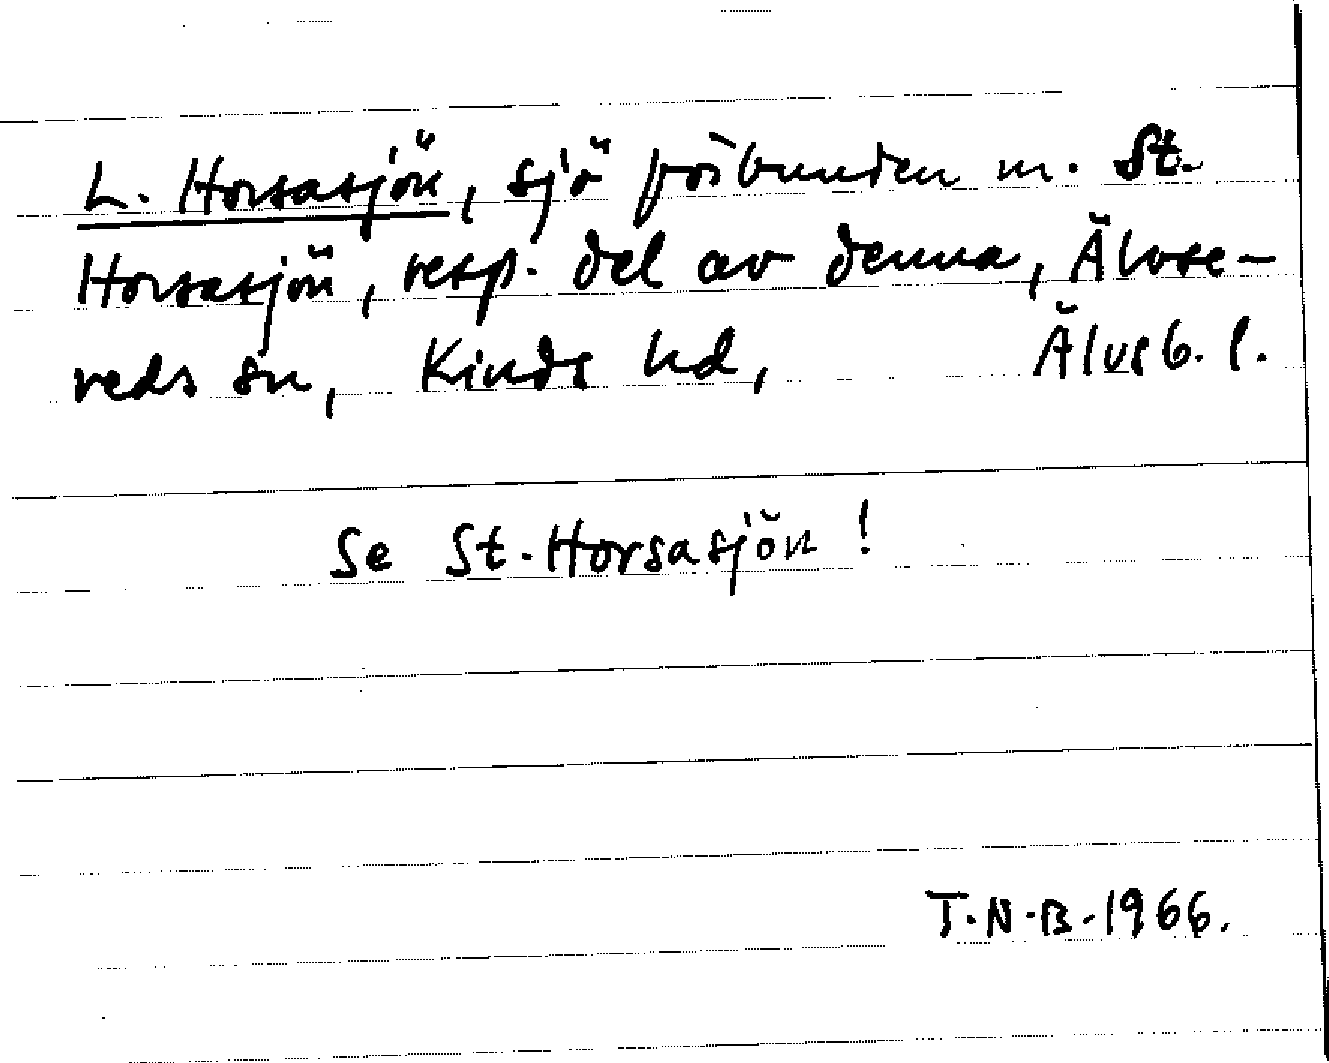 L. Horsasjön, sjö förbunden m. St.
Horsasjön, resp. del av denna, Älvse-
reds sn, Kinds hd, Älvsb. l.
Se St. Horsasjön!
T.N.B. 1966.